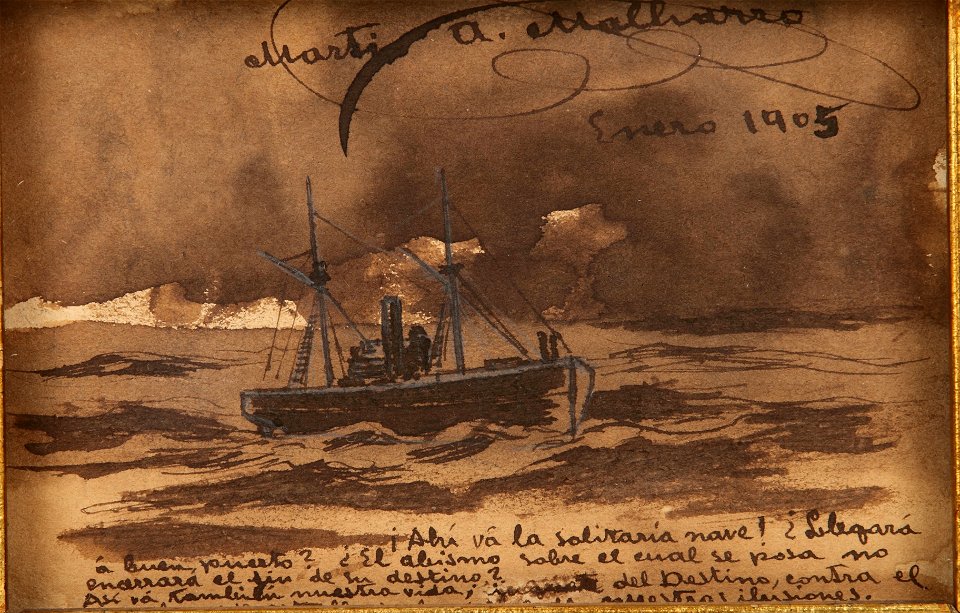 Martin A. Malharro
Enero 1905
¡Ahí vá la solitaria nave! ¿Llegará
á buen puerto? ¿El abismo sobre el cual se posa no
enarrará el fin de su destino?
Así vá también nuestra vida, del Destino, contra el
nuestras ilusiones.